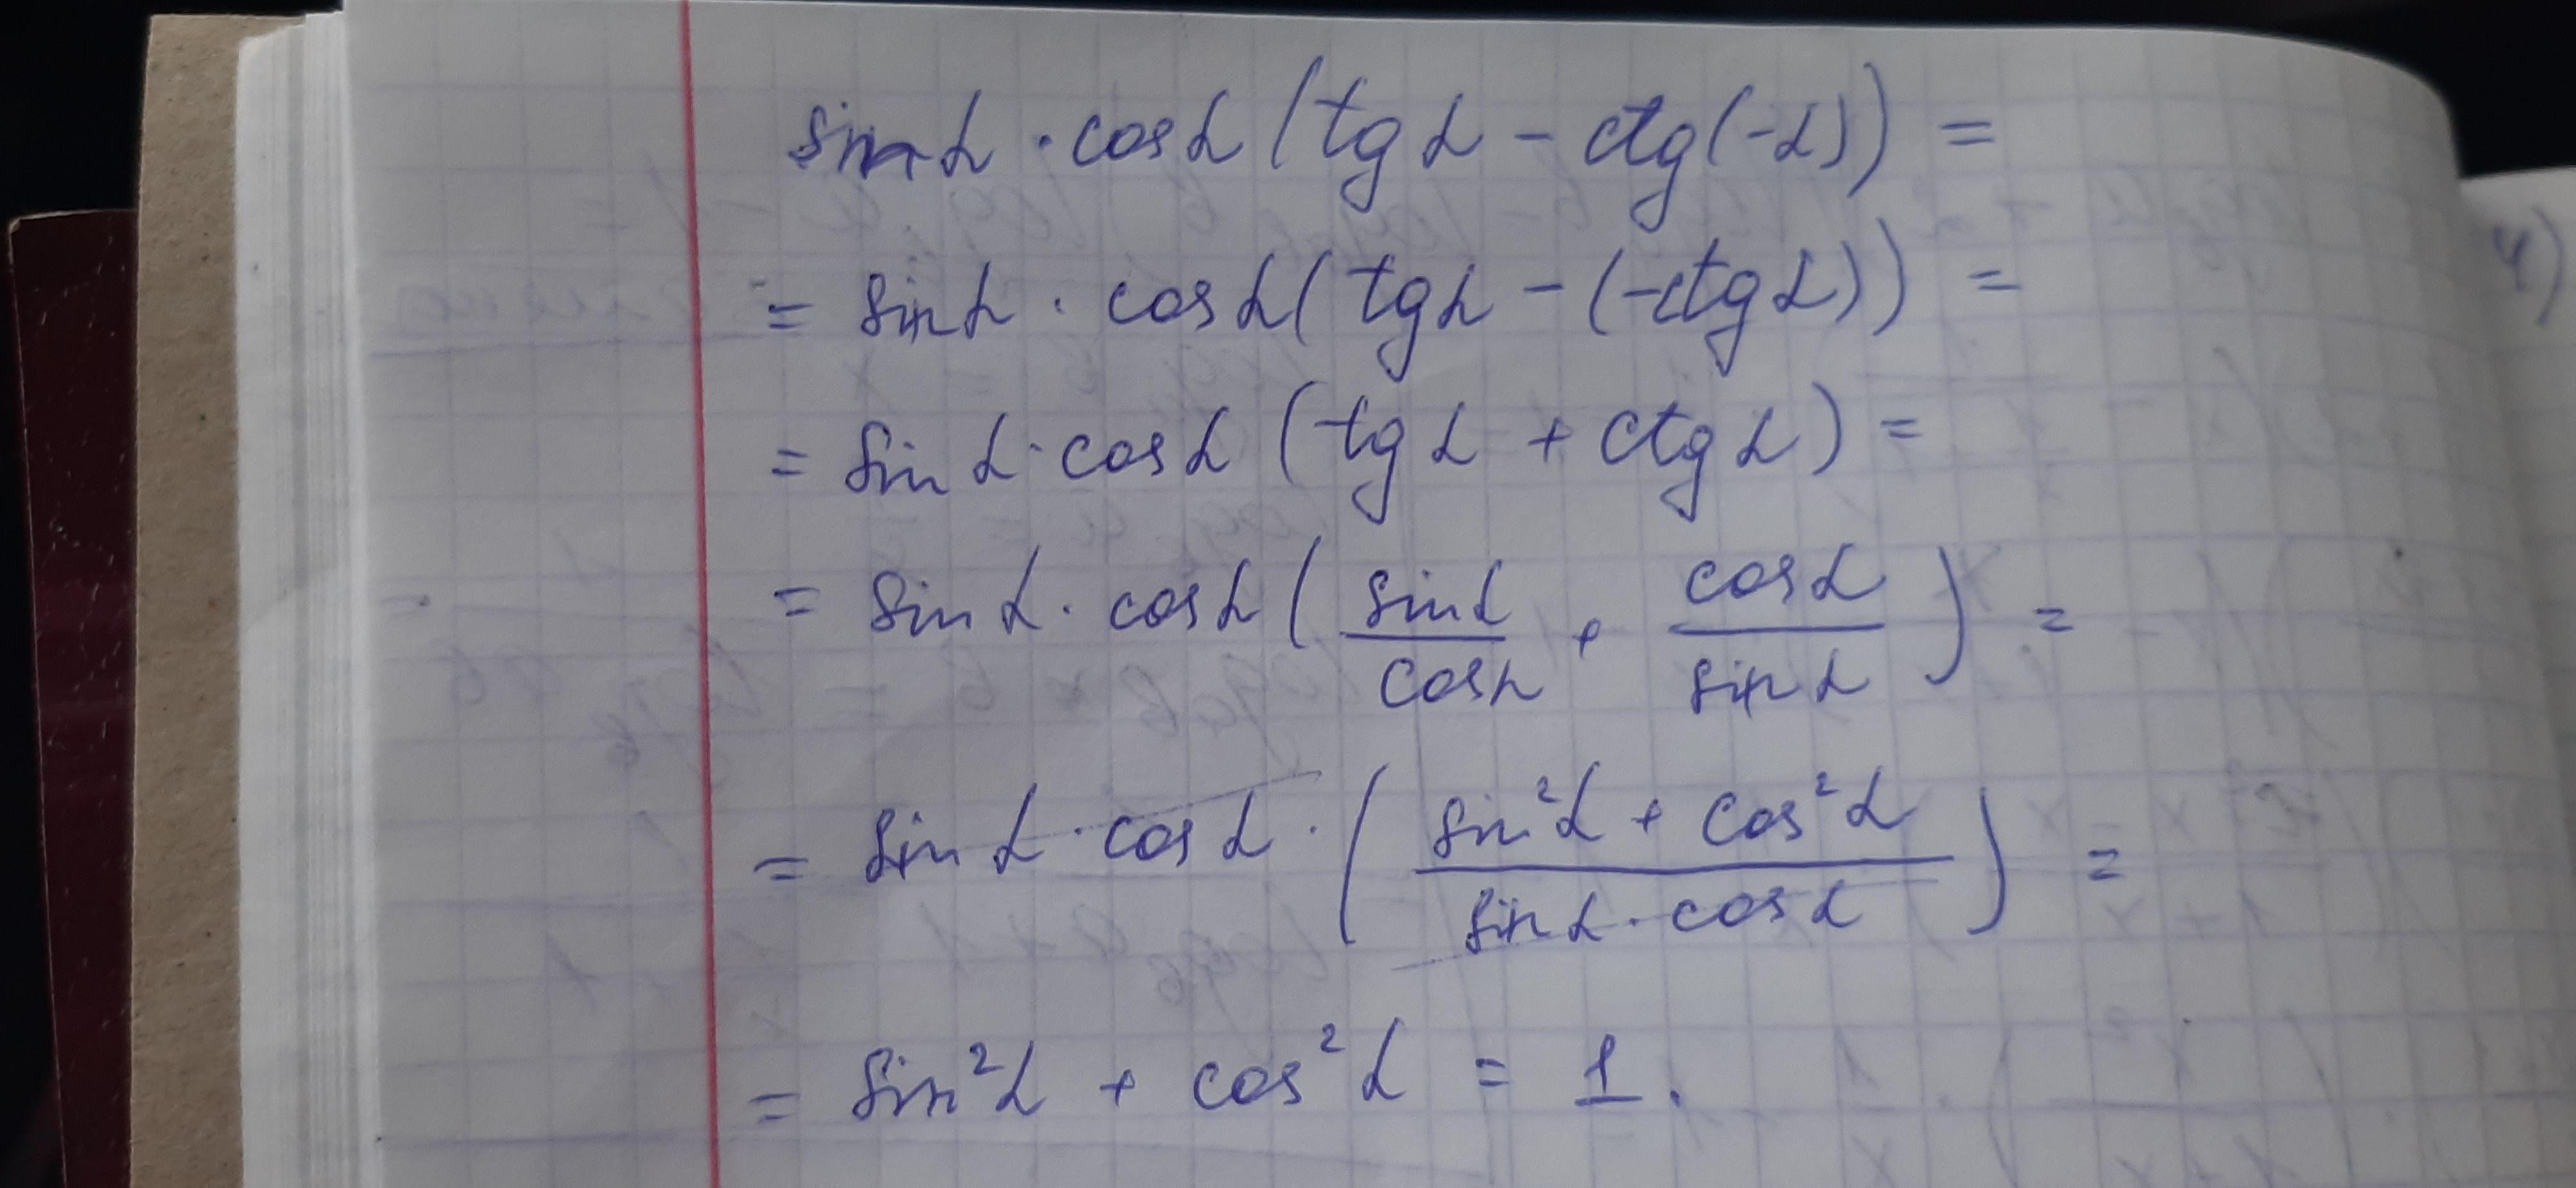 sin α · cos α (tg α - ctg(-α)) =
= sin α · cos α (tg α - (-ctg α)) =
= sin α · cos α (tg α + ctg α) =
= sin α · cos α ( sin α / cos α + cos α / sin α ) =
= sin α · cos α · ( sin² α + cos² α / sin α · cos α ) =
= sin² α + cos² α = 1.
4)